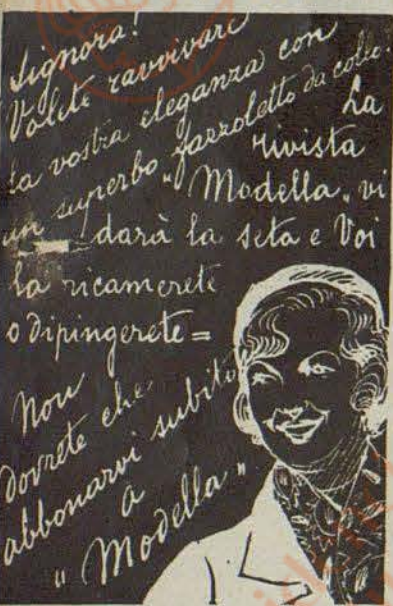 Signora!
Volete ravvivare
la vostra eleganza con
un superbo fazzoletto da collo.
La
rivista
"Modella" vi
darà la seta e Voi
la ricamerete
o dipingerete =
Non
dovrete che
abbonarvi subito
a
"Modella"